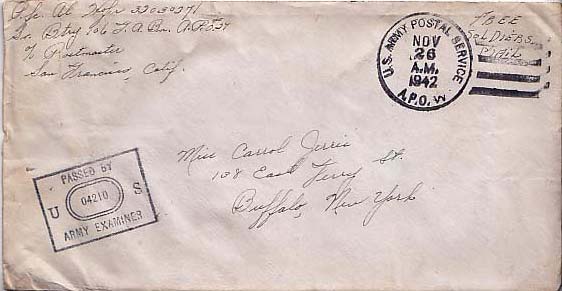 Pfc. Al 32030371
Sv. Btry 106 F. A. Bn. A.P.O. 27
℅ Postmaster
San Francisco, Calif.
U.S. ARMY POSTAL SERVICE
NOV
26
A.M.
1942
A.P.O.
FREE
SOLDIERS
MAIL
Miss Carrol
108 East Ferry St.
Buffalo, New York
PASSED BY
U 04210 S
ARMY EXAMINER